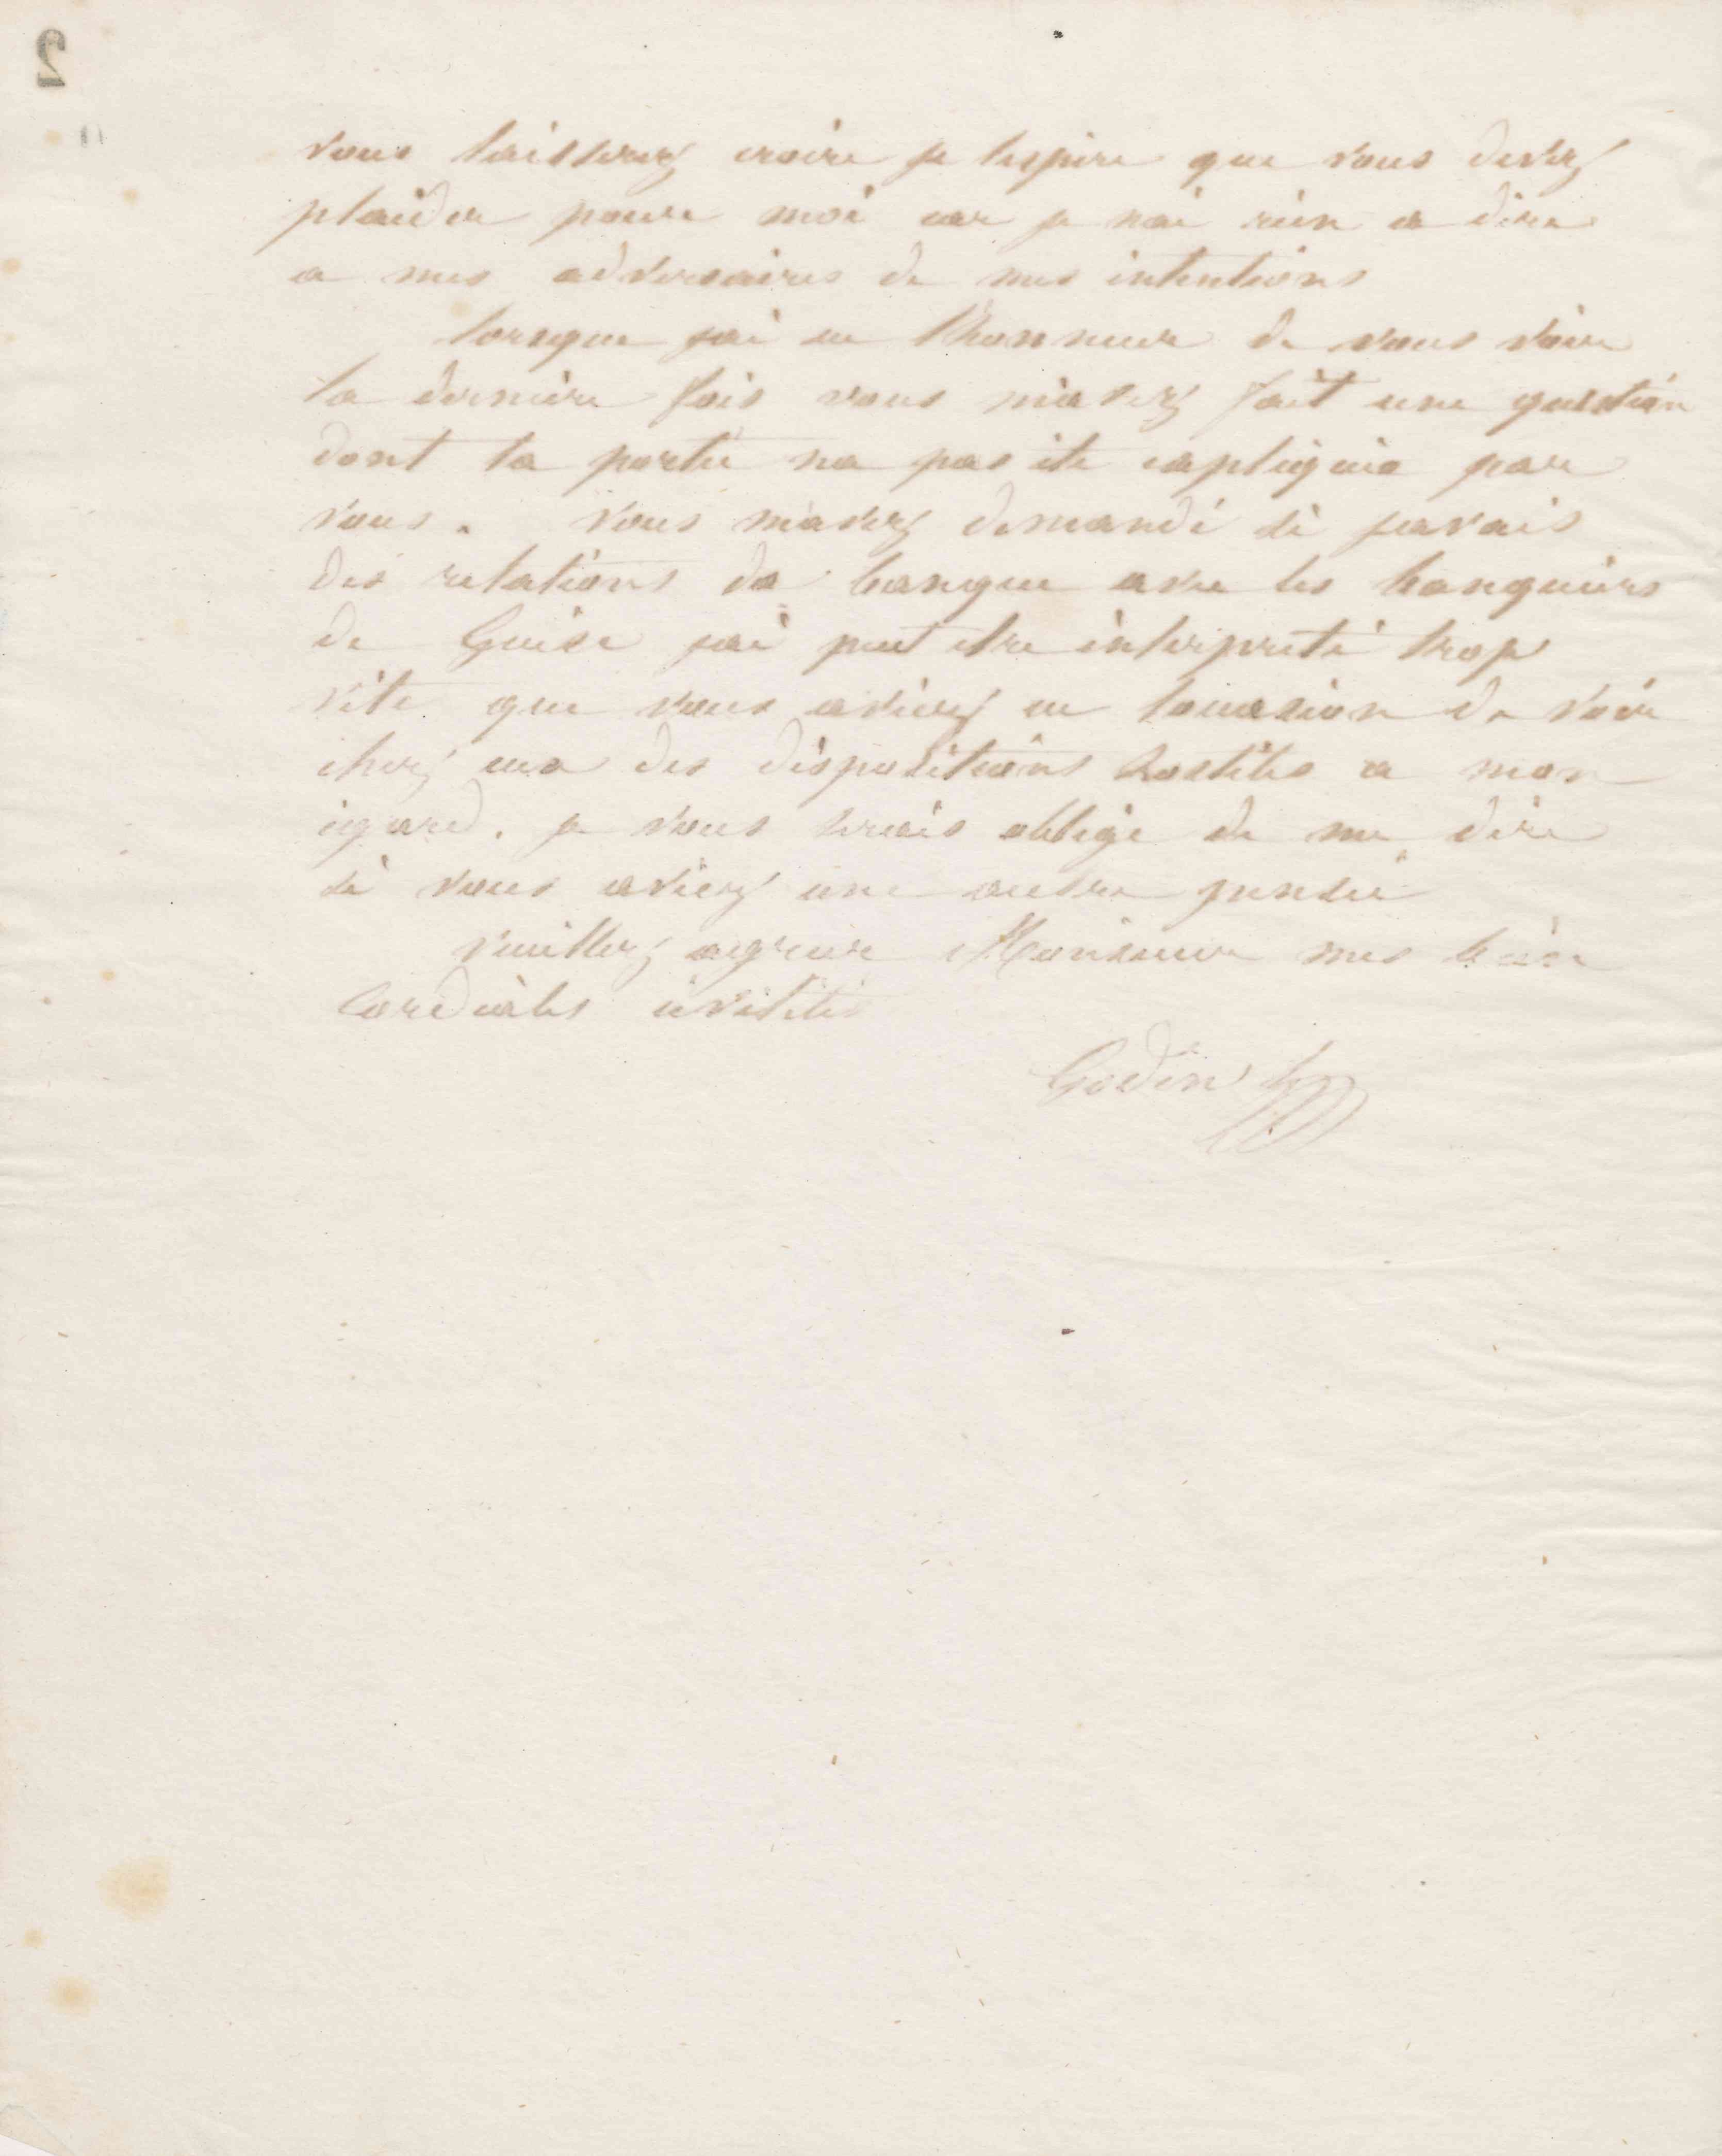 2
vous laisserez croire je lespère que vous devez
plaider pour moi car je nai rien a dire
a mes adversaires de mes intentions
lorsque jai eu lhonneur de vous voir
la dernière fois vous mavez fait une question
dont la porté na pas été expliquée par
vous. vous mavez demandé si javais
des relations de banque avec les banquiers
de Guise jai peut etre interprété trop
vite que vous aviez eu loccasion de voir
chez eux des dispositions hostiles a mon
égard. je vous serais obligé de me dire
si vous aviez une autre pensée
veuillez agréer Monsieur mes bien
cordiales civilités
Godin